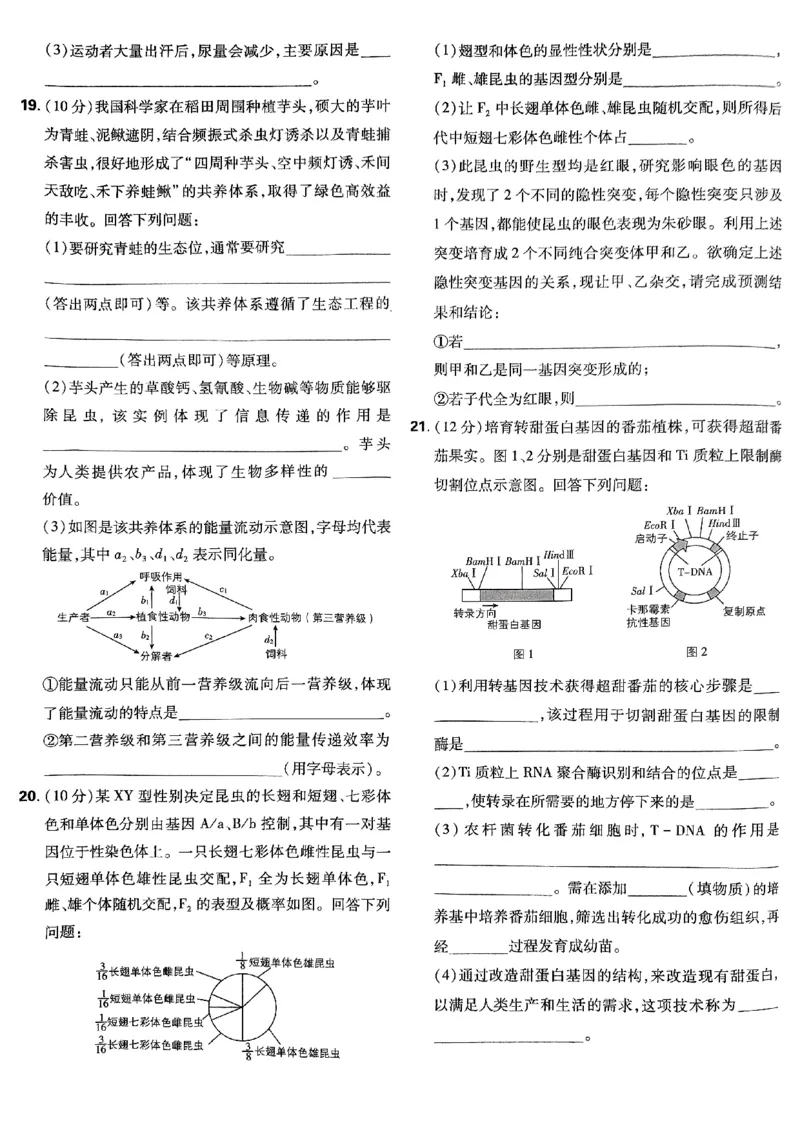 (3)运动者大量出汗后,尿量会减少,主要原因是____
____________________________。
19.(10分)我国科学家在稻田周围种植芋头,硕大的芋叶
为青蛙、泥鳅遮阴,结合频振式杀虫灯诱杀以及青蛙捕
杀害虫,很好地形成了“四周种芋头、空中频灯诱、禾间
天敌吃、禾下养蛙鳅”的共养体系,取得了绿色高效益
的丰收。回答下列问题:
(1)要研究青蛙的生态位,通常要研究____________
____________________________________
(答出两点即可)等。该共养体系遵循了生态工程的
____________________________________
________(答出两点即可)等原理。
(2)芋头产生的草酸钙、氢氰酸、生物碱等物质能够驱
除昆虫,该实例体现了信息传递的作用是
______________________________。芋头
为人类提供农产品,体现了生物多样性的______
价值。
(3)如图是该共养体系的能量流动示意图,字母均代表
能量,其中a₂、b₃、d₁、d₂表示同化量。
呼吸作用
a₁ b₁ 饲料 d₁ c₁
生产者 a₂ 植食性动物 b₃ 肉食性动物(第三营养级)
a₃ b₂ c₂ d₂
分解者 饲料
①能量流动只能从前一营养级流向后一营养级,体现
了能量流动的特点是______________________。
②第二营养级和第三营养级之间的能量传递效率为
________________________(用字母表示)。
20.(10分)某XY型性别决定昆虫的长翅和短翅、七彩体
色和单体色分别由基因A/a、B/b控制,其中有一对基
因位于性染色体上。一只长翅七彩体色雌性昆虫与一
只短翅单体色雄性昆虫交配,F₁全为长翅单体色,F₁
雌、雄个体随机交配,F₂的表型及概率如图。回答下列
问题:
3/16长翅单体色雌昆虫
1/8短翅单体色雄昆虫
1/16短翅单体色雌昆虫
1/16短翅七彩体色雌昆虫
3/16长翅七彩体色雌昆虫
3/8长翅单体色雄昆虫
(1)翅型和体色的显性性状分别是______________,
F₁雌、雄昆虫的基因型分别是________________。
(2)让F₂中长翅单体色雌、雄昆虫随机交配,则所得后
代中短翅七彩体色雌性个体占________。
(3)此昆虫的野生型均是红眼,研究影响眼色的基因
时,发现了2个不同的隐性突变,每个隐性突变只涉及
1个基因,都能使昆虫的眼色表现为朱砂眼。利用上述
突变培育成2个不同纯合突变体甲和乙。欲确定上述
隐性突变基因的关系,现让甲、乙杂交,请完成预测结
果和结论:
①若________________________________,
则甲和乙是同一基因突变形成的;
②若子代全为红眼,则______________________。
21.(12分)培育转甜蛋白基因的番茄植株,可获得超甜番
茄果实。图1、2分别是甜蛋白基因和Ti质粒上限制酶
切割位点示意图。回答下列问题:
BamHⅠ BamHⅠ HindⅢ
XbaⅠ SalⅠ EcoRⅠ
转录方向
甜蛋白基因
图1
XbaⅠ BamHⅠ
EcoRⅠ HindⅢ
启动子 终止子
T-DNA
SalⅠ
卡那霉素
抗性基因
复制原点
图2
(1)利用转基因技术获得超甜番茄的核心步骤是___
____________,该过程用于切割甜蛋白基因的限制
酶是________________________________。
(2)Ti质粒上RNA聚合酶识别和结合的位点是_____
____,使转录在所需要的地方停下来的是________。
(3)农杆菌转化番茄细胞时,T-DNA的作用是
____________________________________
____________。需在添加______(填物质)的培
养基中培养番茄细胞,筛选出转化成功的愈伤组织,再
经______过程发育成幼苗。
(4)通过改造甜蛋白基因的结构,来改造现有甜蛋白,
以满足人类生产和生活的需求,这项技术称为____
________________。